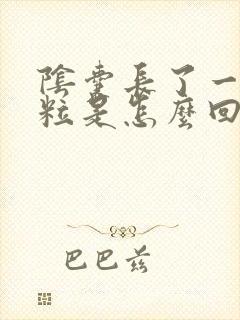 陰囊長了一
粒是怎麼回
巴巴兹